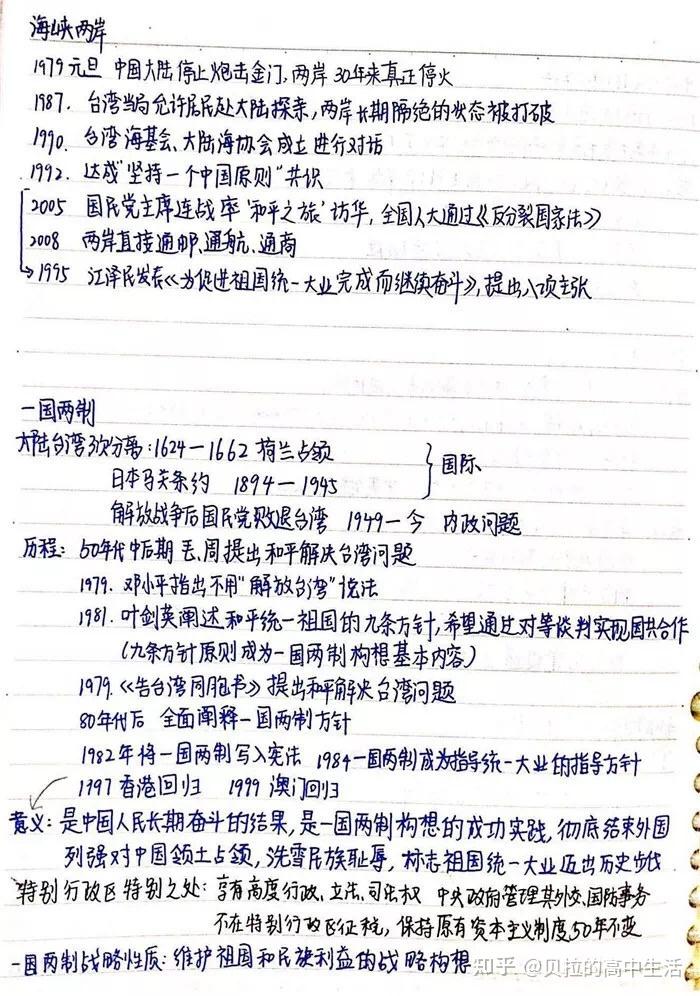 海峡两岸
1979元旦 中国大陆停止炮击金门,两岸30年来真正停火
1987. 台湾当局允许居民赴大陆探亲,两岸长期隔绝的状态被打破
1990. 台湾海基会、大陆海协会成立进行对话
1992. 达成"坚持一个中国原则"共识
2005 国民党主席连战率'和平之旅'访华,全国人大通过《反分裂国家法》
2008 两岸直接通邮、通航、通商
→1995 江泽民发表《为促进祖国统一大业完成而继续奋斗》,提出八项主张
一国两制
大陆台湾3次分离:1624—1662 荷兰占领
日本马关条约 1894—1945
} 国际
解放战争后国民党败退台湾 1949—今 内政问题
历程: 50年代中后期 毛、周提出和平解决台湾问题
1979. 邓小平指出不用"解放台湾"说法
1981. 叶剑英阐述和平统一祖国的九条方针,希望通过对等谈判实现国共合作
(九条方针原则成为一国两制构想基本内容)
1979.《告台湾同胞书》提出和平解决台湾问题
80年代后 全面阐释一国两制方针
1982年将一国两制写入宪法 1984一国两制成为指导统一大业的指导方针
1997香港回归 1999澳门回归
意义: 是中国人民长期奋斗的结果,是一国两制构想的成功实践,彻底结束外国
列强对中国领土占领,洗雪民族耻辱,标志祖国统一大业迈出历史步伐
特别行政区特别之处: 享有高度行政、立法、司法权 中央政府管理其外交、国防事务
不在特别行政区征税,保持原有资本主义制度50年不变
一国两制战略性质: 维护祖国和民族利益的战略构想
知乎 @贝拉的高中生活